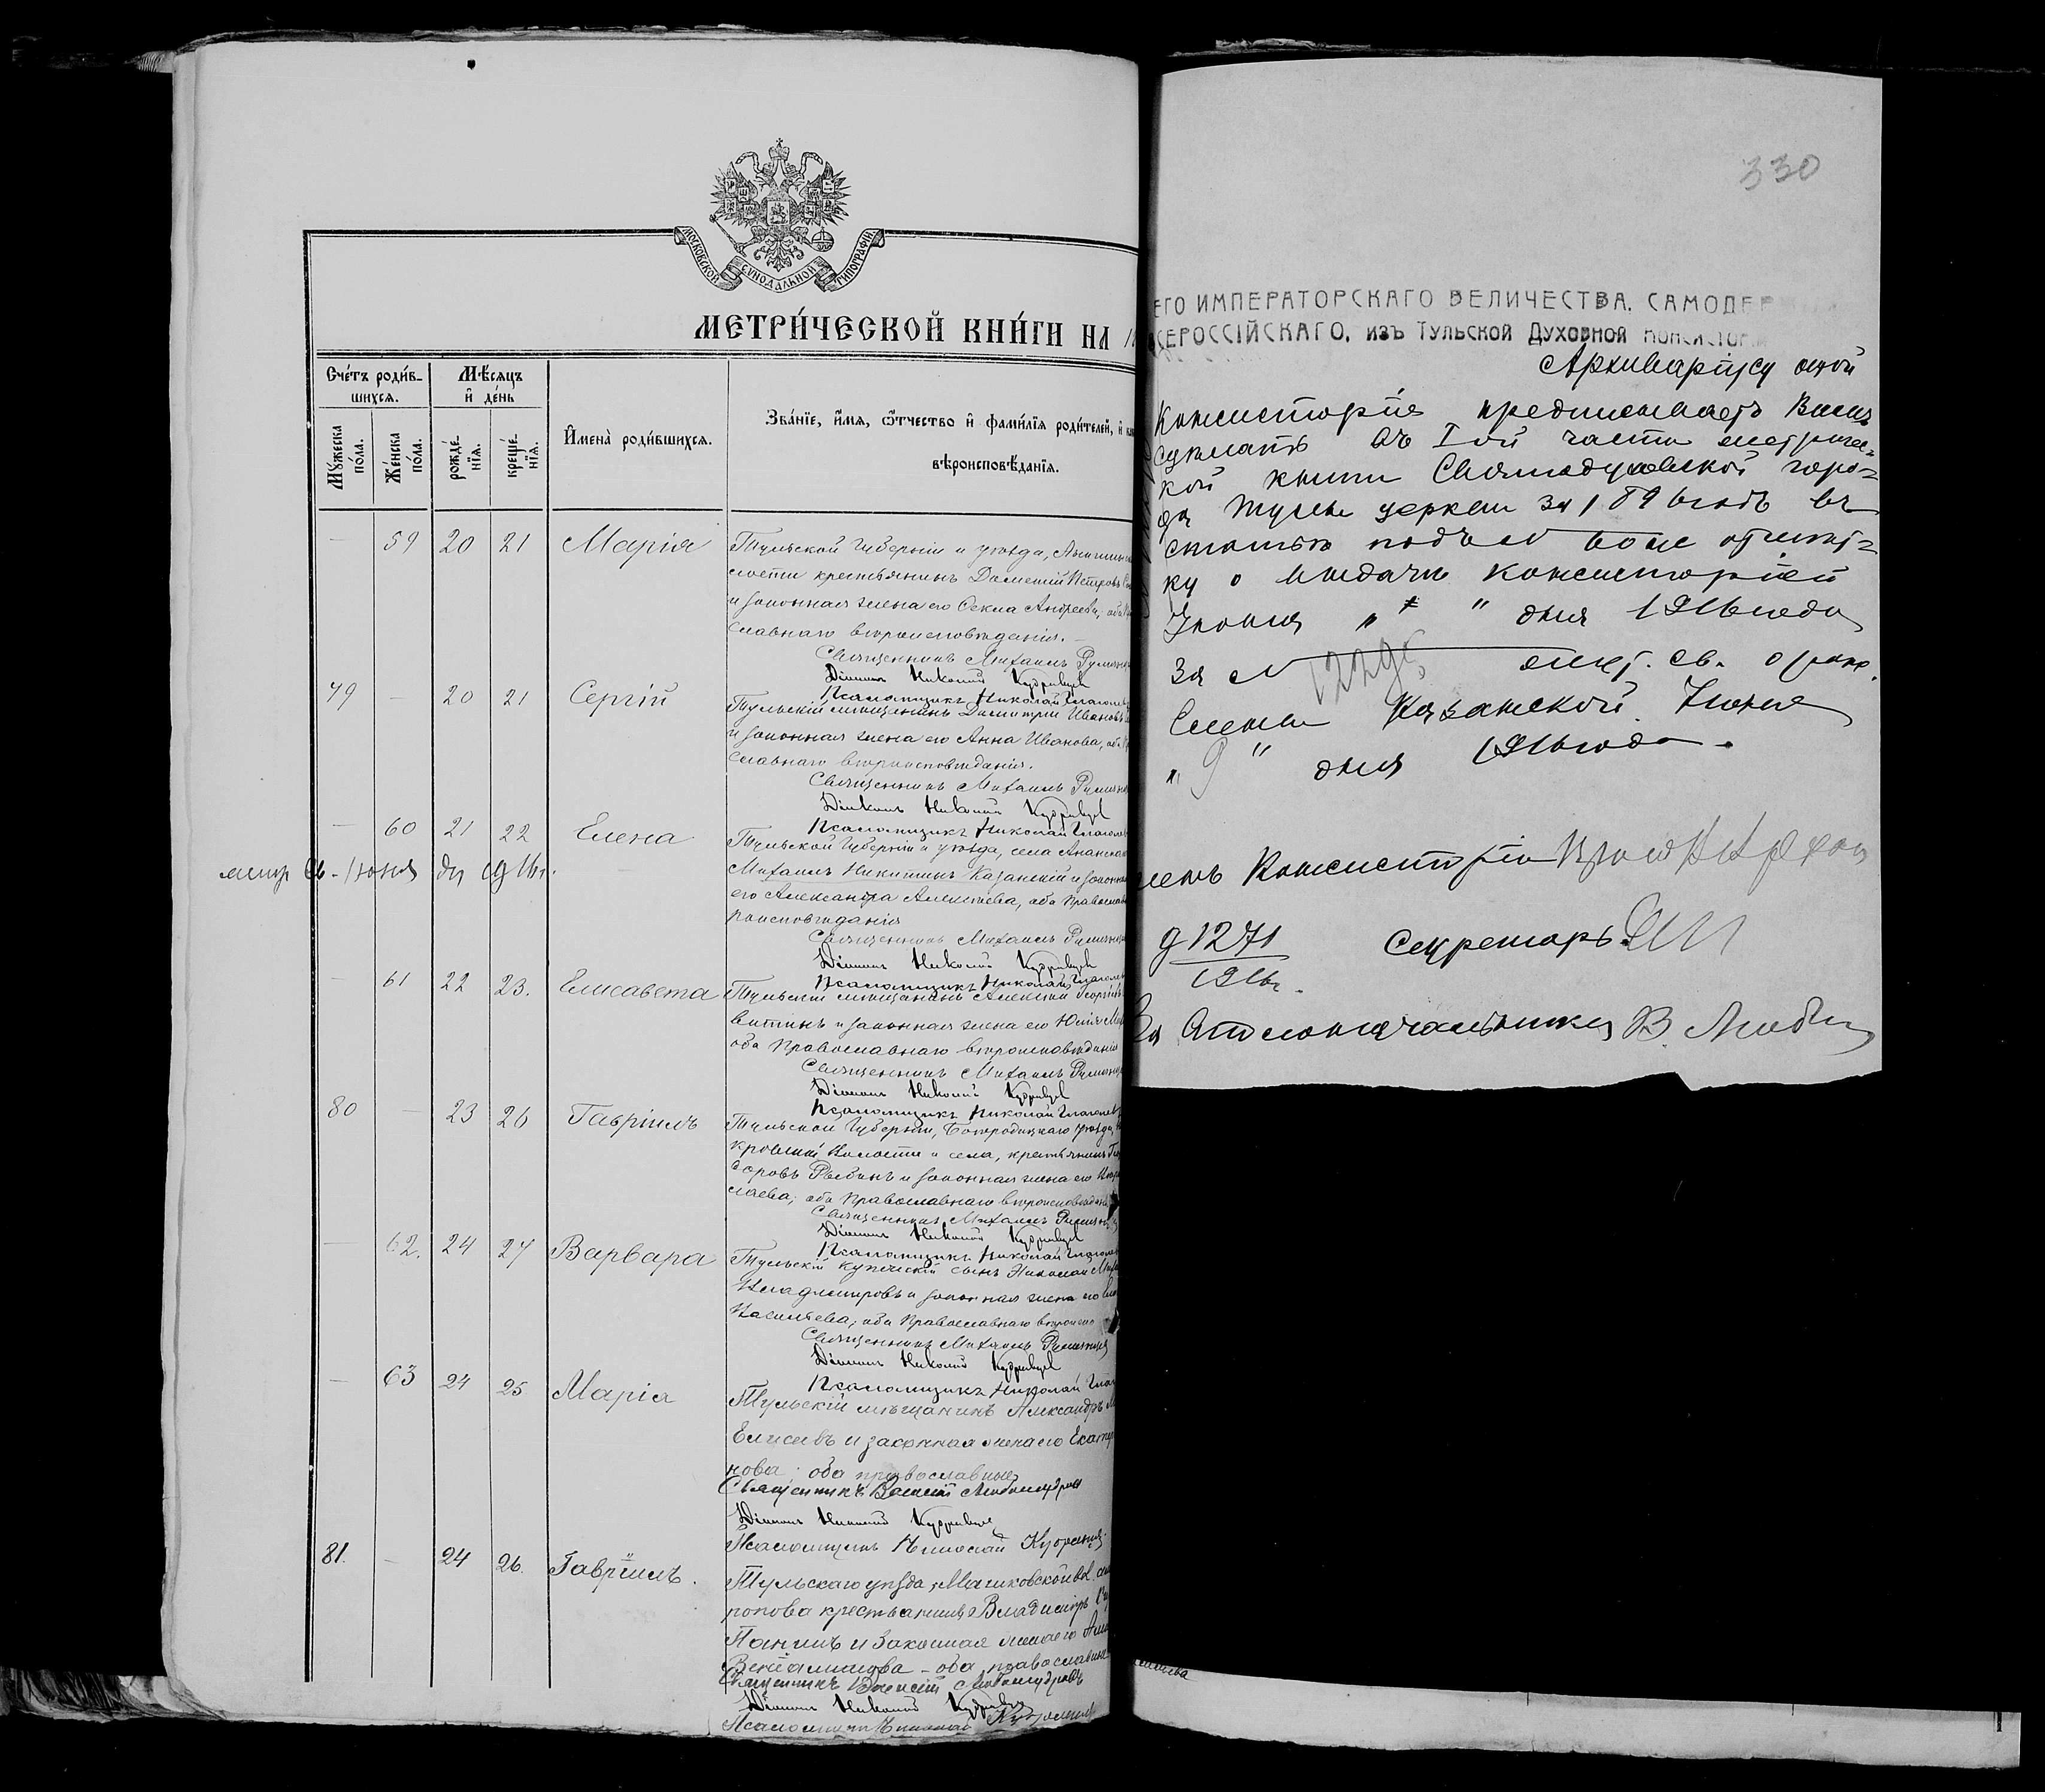 МОСКОВСКОЙ СѴНОДАЛЬНОЙ ТИПОГРАФІИ
МЕТРИ́ЧЕСКОЙ КНИ́ГИ НА
Сче́тъ роди́вшихся.
Мѣ́сяцъ и҆ де́нь
И҆мена̀ роди́вшихся.
Зва́нїе, и҆́мя, ѻ҆́тчество и҆ фами́лїя роди́телей, и҆
вѣроисповѣ́данїя.
Мꙋ́жеска по́ла.
Же́нска по́ла.
рожде́нїя.
креще́нїя.
— 59 20 21 Марія
Тульской Губерніи и уѣзда,
крестьянинъ Дометій Петровъ
и законная жена его Ѳекла Андреева, оба
славнаго вѣроисповѣданія. —
Священникъ Михаилъ
Діаконъ Николай Кудрявцев
Псаломщикъ Николай
79 — 20 21 Сергій
Тульскій мѣщанинъ Димитрій Ивановъ
и законная жена его Анна Иванова, оба
славнаго вѣроисповѣданія.
Священникъ Михаилъ
Діаконъ Николай Кудрявцев
Псаломщикъ Николай
— 60 21 22 Елена
Тульской Губерніи и уѣзда, села
Св. Іюня 9 дня 1916 г.
Михаилъ Никитинъ Казанскій и законная
его Александра Алексѣева, оба Православ
роисповѣданія
Священникъ Михаилъ
Діаконъ Николай Кудрявцев
Псаломщикъ Николай
— 61 22 23. Елисавета
Тульскій мѣщанинъ Алексѣй Георгіевъ
витинъ и законная жена его Юлія
оба Православнаго вѣроисповѣданія
Священникъ Михаилъ
Діаконъ Николай Кудрявцев
Псаломщикъ Николай
80 — 23 26 Гавріилъ
Тульской Губерніи, Богородицкаго уѣзда,
кровской Волости и села, крестьянинъ
доровъ Рыбинъ и законная жена его
лаева; оба Православнаго вѣроисповѣданія
Священникъ Михаилъ
Діаконъ Николай Кудрявцев
Псаломщикъ Николай
— 62. 24 27 Варвара
Тульскій купеческій сынъ Николай
Владимировъ и законная жена его
Васильева; оба Православнаго
Священникъ Михаилъ
Діаконъ Николай Кудрявцев
Псаломщикъ Николай
— 63 24 25 Марія
Тульскій мѣщанинъ Александръ
Елисеевъ и законная жена его
нова; оба православные
Священникъ Василій Любомудров
Діаконъ Николай Кудрявцев
Псаломщикъ Николай
81. — 24 26. Гавріилъ.
Тульскаго уѣзда,
попова крестьянинъ Владиміръ
Панинъ и законная жена его
Веніаминова — оба православные
Священникъ Василій Любомудровъ
Діаконъ Николай Кудрявцев
Псаломщикъ Николай
330
ЕГО ИМПЕРАТОРСКАГО ВЕЛИЧЕСТВА, САМОДЕР
ВСЕРОССІЙСКАГО, ИЗЪ ТУЛЬСКОЙ ДУХОВНОЙ КОНСИСТОРІ
Архиваріусу оной
Консисторія предписываетъ Вамъ
сдѣлать въ I ой части метричес=
кой книги Святодуховской горо=
да Тулы церкви за 1896 годъ въ
статьѣ подъ № 60 ж отмѣт=
ку о выдачѣ Консисторіей
Іюня " " дня 1916 года
За № 12296 мет. св. о рожд.
Елены Казанской. Іюня
" 9 " дня 1916 года.
Членъ Консисторіи
д 1271
1916 г.
Секретарь
За Столоначальника В.